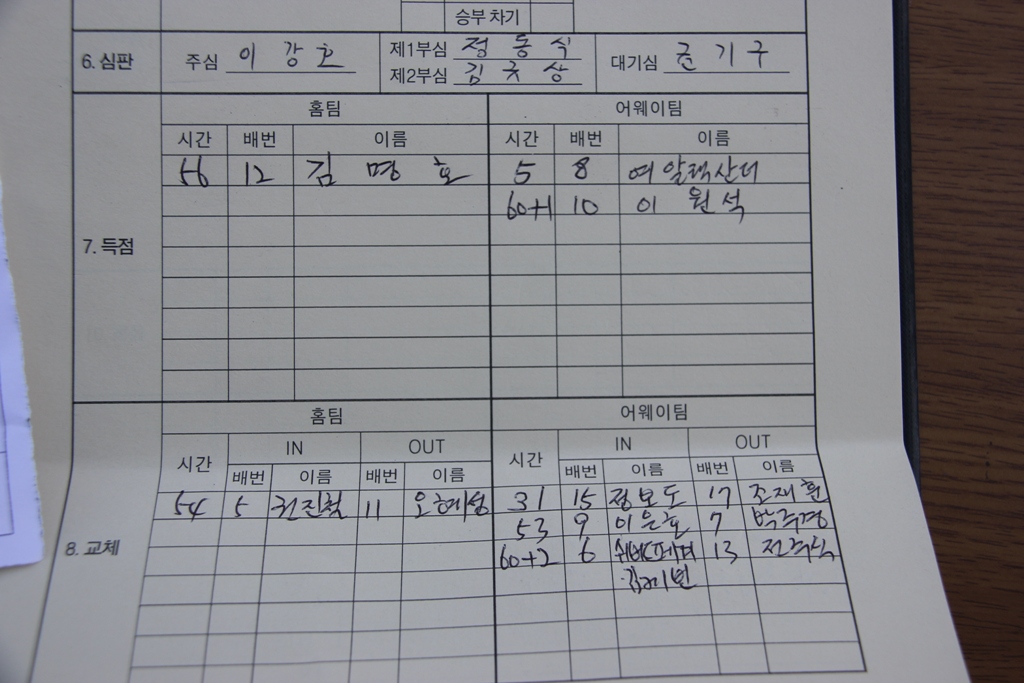 승부 차기
6. 심판 주심 이 강 호 제1부심 정 동 식 대기심 기 구
제2부심 김 상
홈팀 어웨이팀
시간 배번 이름 시간 배번 이름
56 12 김 명 호 5 8 여 알렉산더
60+1 10 이 원 석
7. 득점
홈팀 어웨이팀
시간 IN OUT 시간 IN OUT
배번 이름 배번 이름 배번 이름 배번 이름
54 5 권진철 11 오혜성 31 15 정보도 17 조재훈
53 9 이은호 7 박주경
60+2 6 13
8. 교체